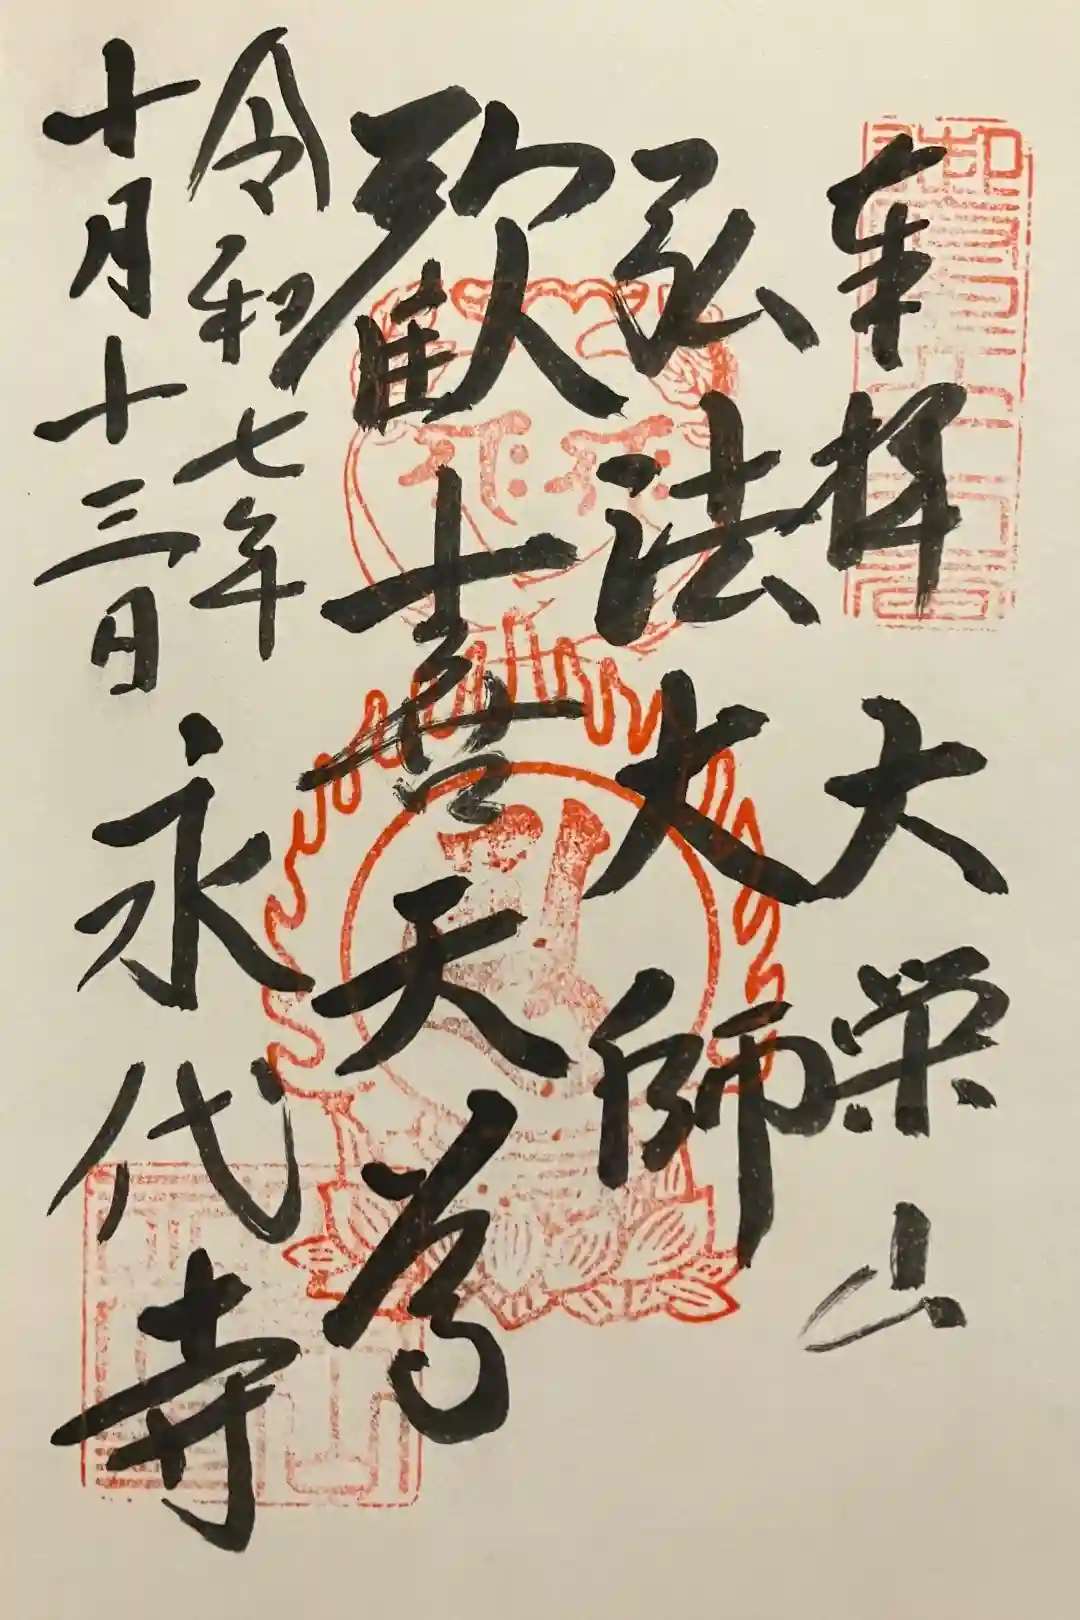 奉拝 大栄山
弘法大師
歓喜天尊
令和七年
十月十三日
永代寺